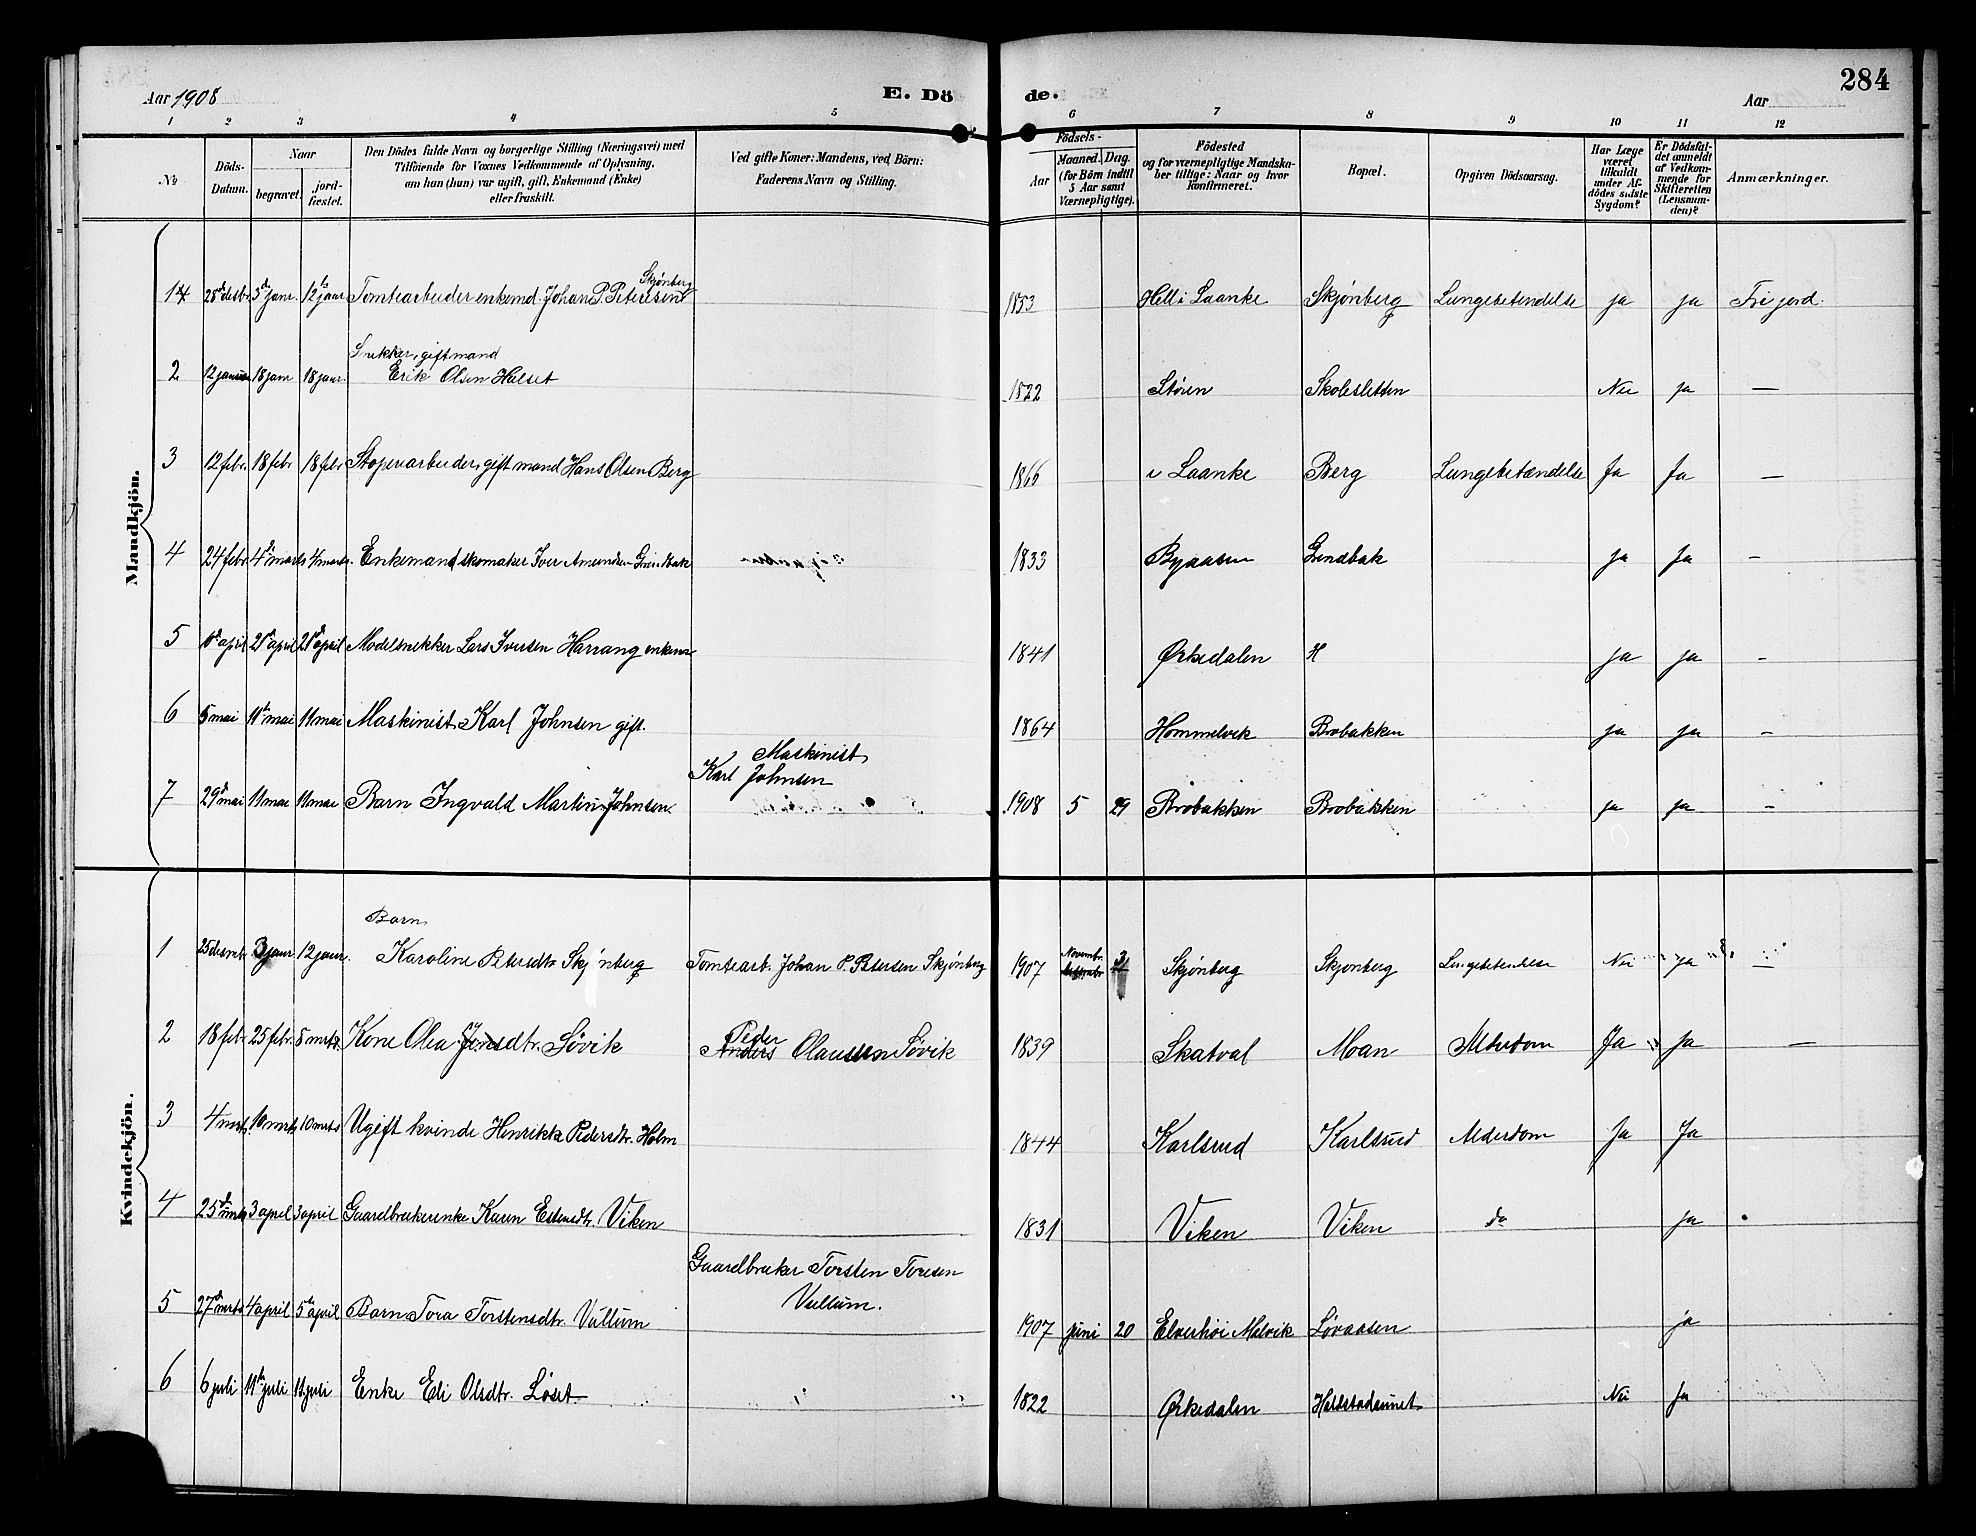 Aar 1908
E. Dö
de.
Aar
284
1 2 3 4 5 6 7 8 9 10 11 12
No
Döds-
Datum.
Naar
begravet.
jord-
fæstet.
Den Dödes fulde Navn og borgerlige Stilling (Næringsvei) med
Tilföiende for Voxnes Vedkommende af Oplysning.
om han (hun) var ugift, gift, Enkemand (Enke)
eller fraskilt.
Ved gifte Koner: Mandens, ved Börn:
Faderens Navn og Stilling.
Födsels-
Aar
Maaned. Dag.
(for Börn indtil
5 Aar samt
Værnepligtige).
Födested
og for værnepligtige Mandska-
ber tillige: Naar og hvor
konfirmeret.
Bopæl.
Opgiven Dödsaarsag.
Har Læge
været
tilkaldt
under Af-
dödes sidste
Sygdom?
Er Dödsfal-
det anmeldt
af Vedkom-
mende for
Skifteretten
(Lensman-
den)?
Anmærkninger.
Mandkjön.
Skjønberg
1 28de desbr 3de janr. 12te janr Tomtearbeider enkemd. Johan P. Petersen 1853 Hell i Laanke Skjønberg Lungebetendelse ja ja Tri jord.
Snekker, gift mand
2 12 januar 18 janr 18 janr. Erik Olsen Halset 1822 Støren Skolesletten Nei ja —
3 12 febr. 18 febr 18 febr gift mand Hans Olsen Berg 1866 i Laanke Berg Lungebetændelse Ja Ja —
4 24 febr. 4de marts 4 marts. Enkemand skomaker Iver Amundsen 1833 Byaasen ja Ja —
5 april 21de april 21de april Modelsnekker Lars Iversen Harrang 1841 Ørkedalen H ja ja —
6 5 mai 11te mai 11 mai Maskinist. Karl Johnsen gift. 1864 Hommelvik Brobakken ja ja —
Maskinist
Karl Johnsen
7 29de mai 11 mai 11 mai Barn Ingvald Martin Johnsen 1908 5 29 Brobakken Brobakken ja ja —
Kvindekjön.
Barn
1 25 desembr 3 janr 12 janr. Karoline Petersdtr Skjønberg Tomtearb. Johan P. Petersen Skjønberg 1907 Novembr. Skjønberg Skjønberg Lungebetendelse Nei ja —
Peder
2 18 febr. 25 febr. 8 mrts. Kone Olea Jonsdtr. Søvik Anders Olaussen Søvik 1839 Skatval Moan Alderdom Ja Ja —
3 4 mrts. 10 mrts 10 mrts Ugift kvinde Henrikke Pedersdtr. Holm 1844 Karlsrud Karlsrud Alderdom Ja Ja
4 25de mrts 3 april 3 april Gaardbrukerenke Karen Estensdtr. Viken 1831 Viken Viken do ja
Gaardbruker Torsten Toresen
Vullum.
5 27de mrts 4 april 5te april Barn Tora Torstensdtr. Vullum 1907 juni 20 Elverhøi Malvik Løvaasen ja
6 6 juli 11te juli 11 juli Enke Eli Olsdtr. Løset 1822 Ørkedalen Nei Ja